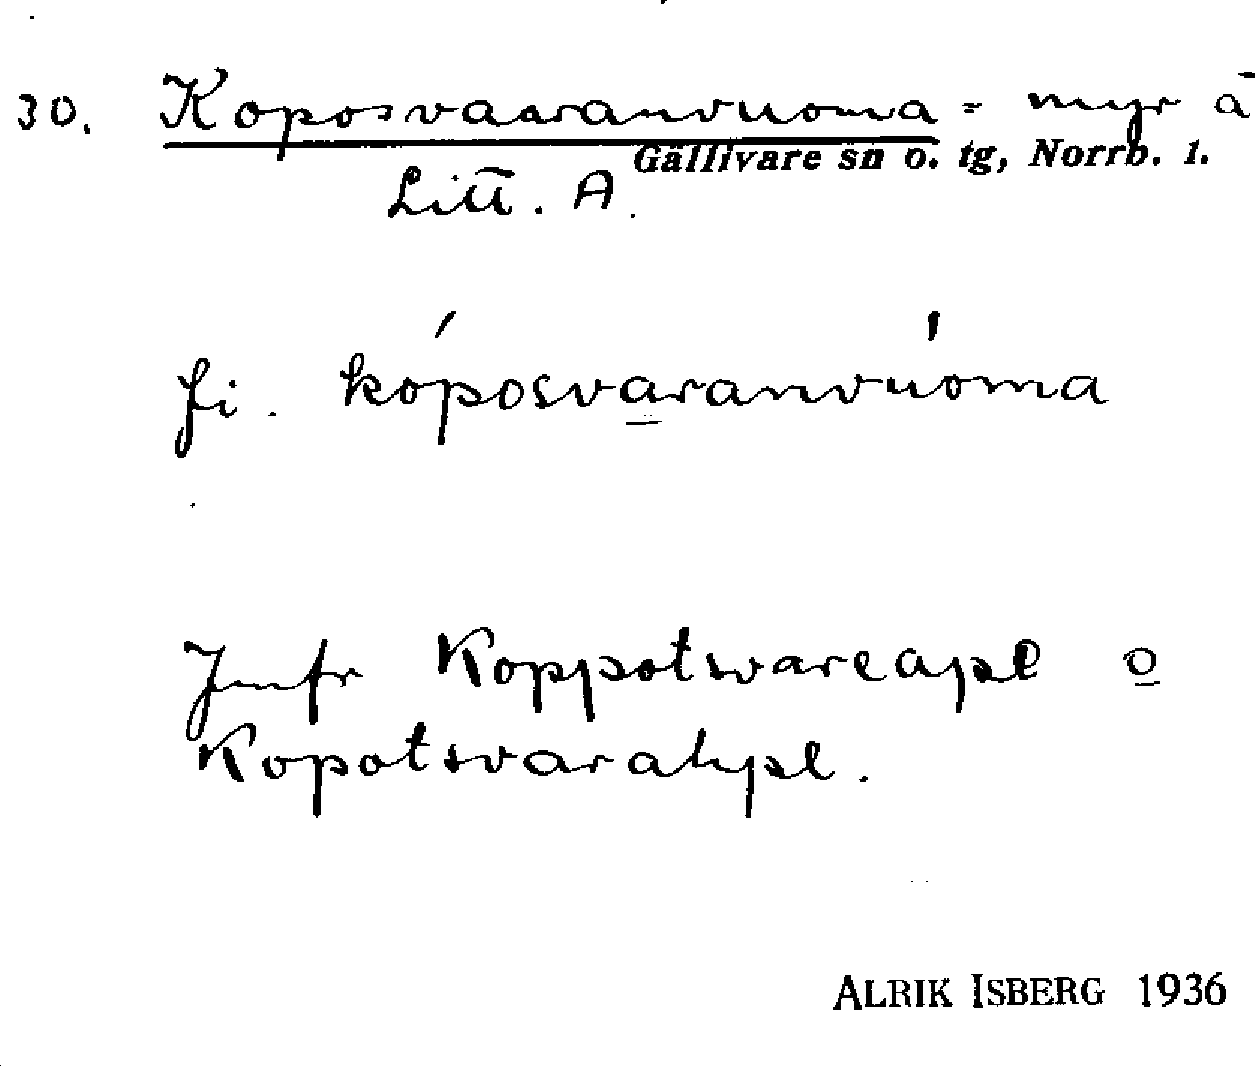 30. Koposvaaranvuoma = myr å
Gällivare sn o. tg, Norrb. l.
Litt. A.
fi. kóposvaranvuoma
Jmfr Koppotsvareapl o
Kopotsvarahpl.
ALRIK ISBERG 1936